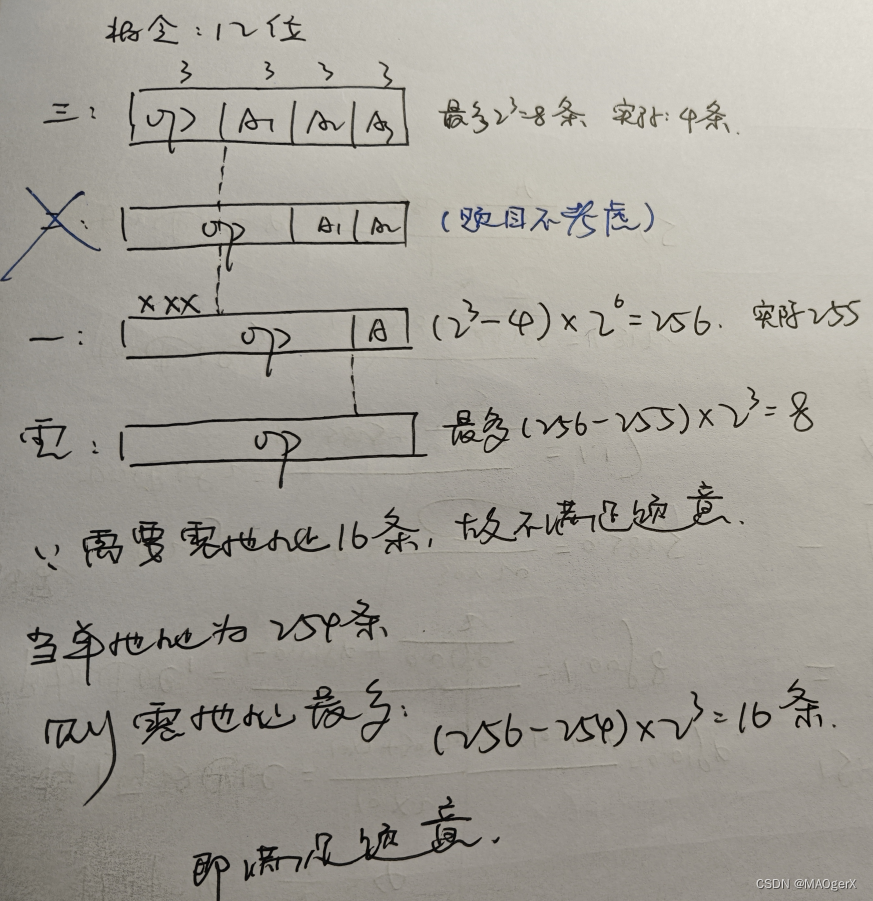 指令：12位
3 3 3 3
三： OP A1 A2 A3 最多2³=8条 实际：4条.
二： OP A1 A2 （题目不考虑）
XXX
一： OP A (2³-4)×2⁶=256. 实际255
零： OP 最多(256-255)×2³=8
∵需要零地址16条，故不满足题意.
当单地址为254条
则零地址最多：(256-254)×2³=16条.
即满足题意.
CSDN @MAOgerX